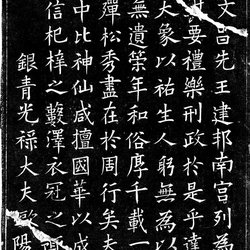 文昌先王建邦南宮列為
其要禮樂刑政於是乎達
大象以祐生人躬無為以
無遺榮年和俗厚千載一
殫松秀盡在於周行矣夫
中比神仙咸擅國華以成
信杞梓之藪澤衣冠之
銀青光祿大夫歐陽